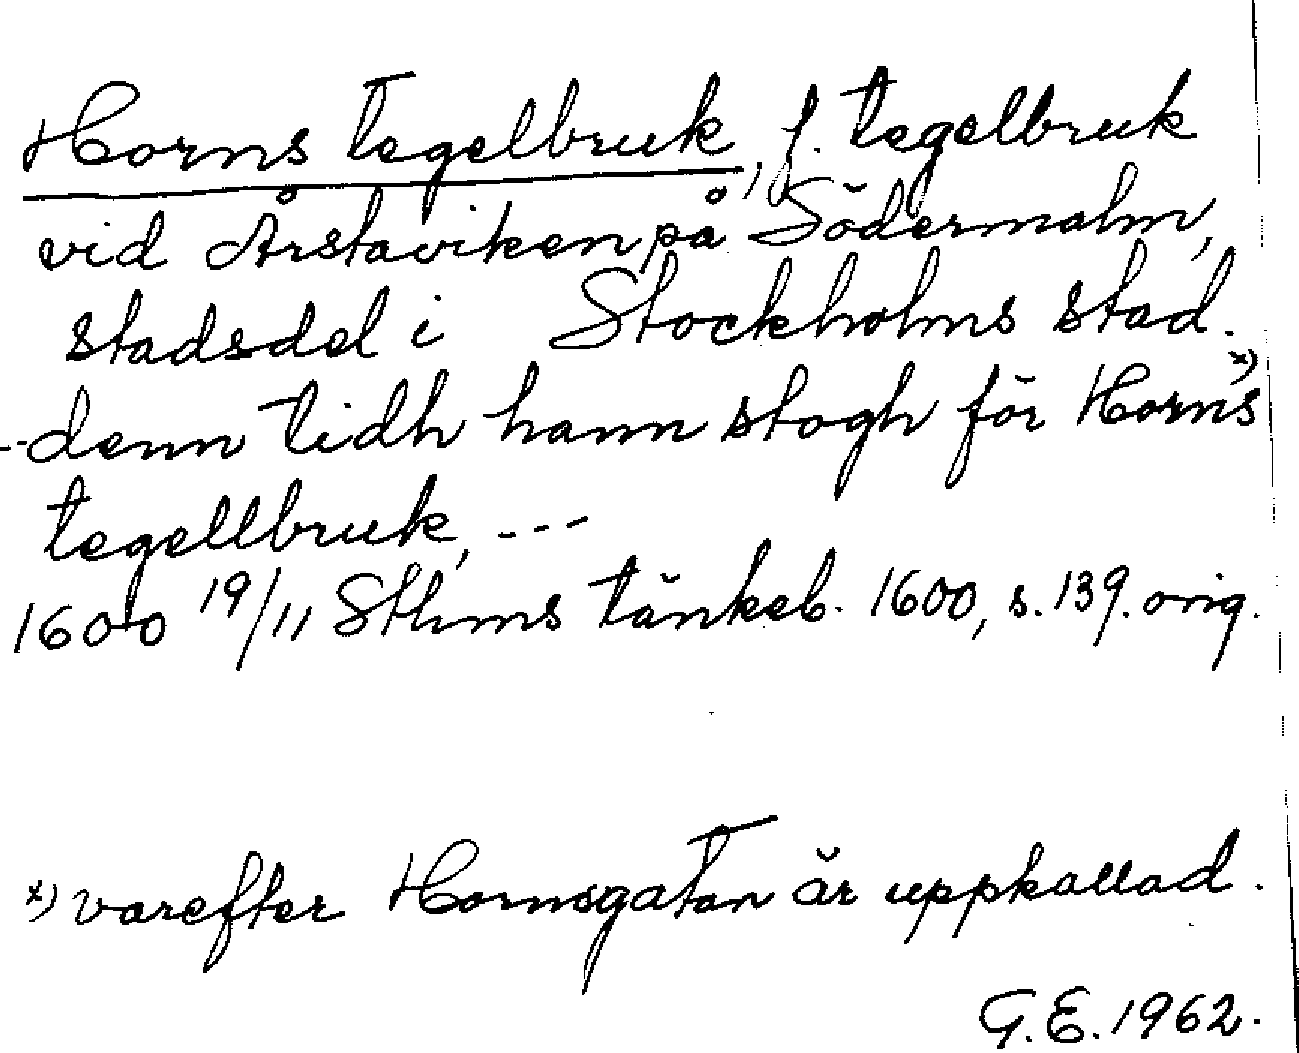 Horns tegelbruk, f. tegelbruk
vid Årstaviken på Södermalm,
stadsdel i Stockholms stad.
--denn tidh hann stogh för Horns x)
tegellbruk, ---
1600 19/11 Sthms tänkeb. 1600, s. 139. orig.
x) varefter Hornsgatan är uppkallad.
G.E. 1962.